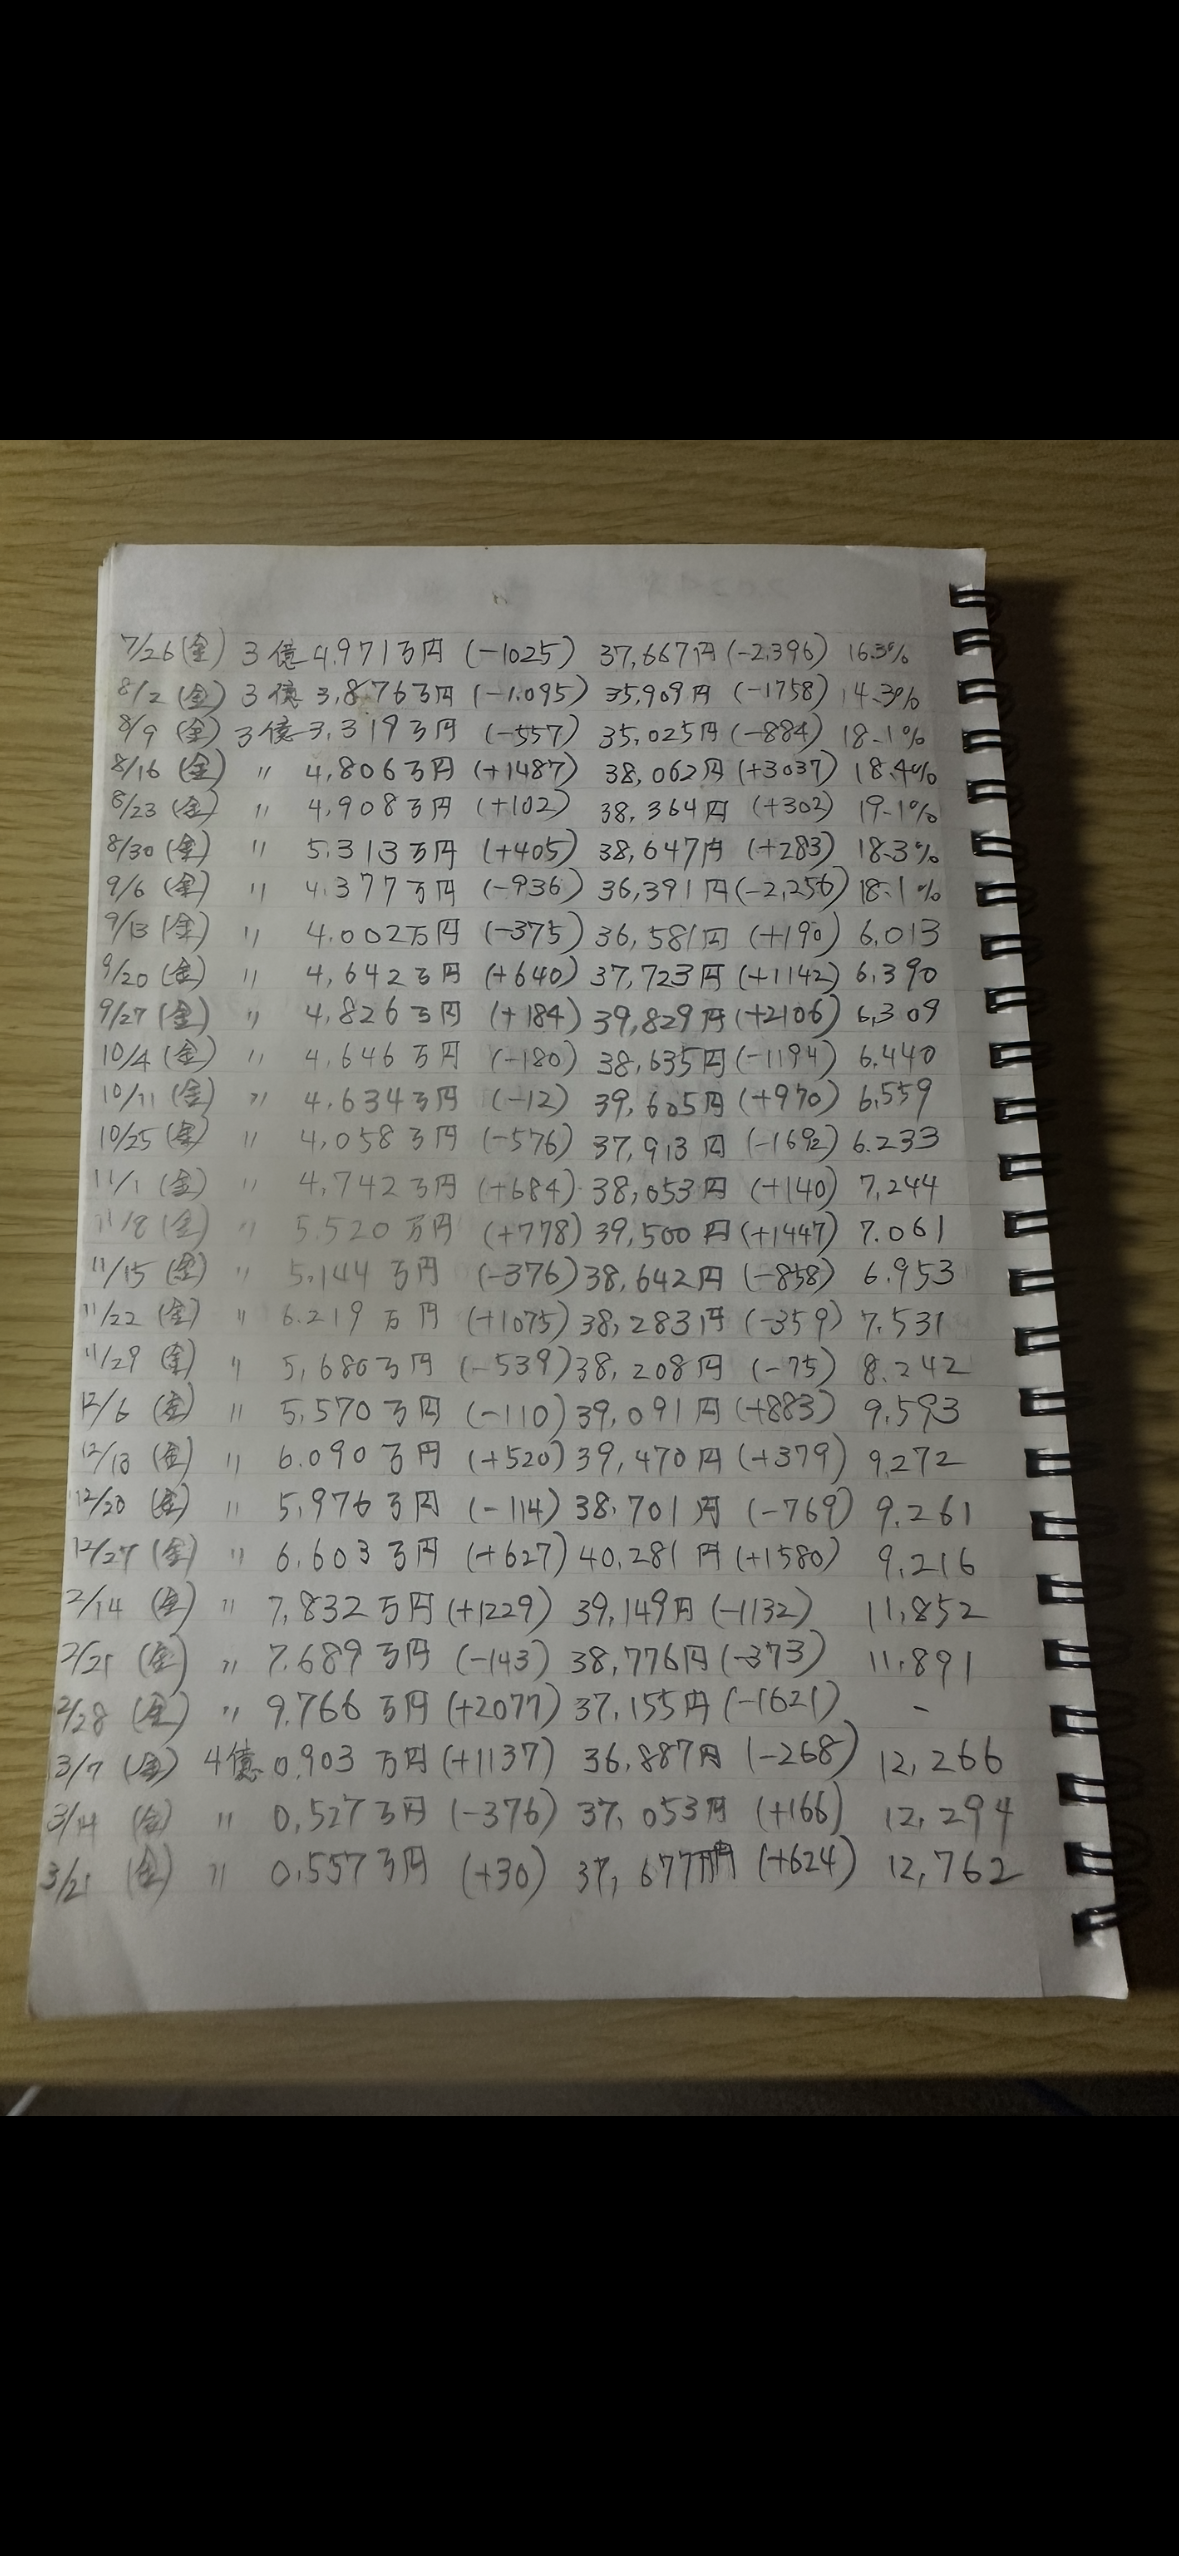 7/26(金) 3億4,971万円 (-1025) 37,667円(-2,396) 16.3%
8/2(金) 3億3,876万円 (-1,095) 35,909円 (-1758) 14.3%
8/9(金) 3億3,319万円 (-557) 35,025円(-884) 18.1%
8/16(金) 〃 4,806万円 (+1487) 38,062円(+3037) 18.4%
8/23(金) 〃 4,908万円 (+102) 38,364円 (+302) 19.1%
8/30(金) 〃 5,313万円 (+405) 38,647円 (+283) 18.3%
9/6(金) 〃 4,377万円 (-936) 36,391円(-2,256) 18.1%
9/13(金) 〃 4,002万円 (-375) 36,581円 (+190) 6,013
9/20(金) 〃 4,642万円 (+640) 37,723円(+1142) 6,390
9/27(金) 〃 4,826万円 (+184) 39,829円(+2106) 6,309
10/4(金) 〃 4,646万円 (-180) 38,635円(-1194) 6.440
10/11(金) 〃 4,634万円 (-12) 39,605円 (+970) 6,559
10/25(金) 〃 4,058万円 (-576) 37,913円 (-1692) 6.233
11/1(金) 〃 4,742万円 (+684) 38,053円 (+140) 7,244
11/8(金) 〃 5.520万円 (+778) 39,500円(+1447) 7.061
11/15(金) 〃 5,144万円 (-376) 38,642円 (-858) 6.953
11/22(金) 〃 6.219万円 (+1075) 38,283円 (-359) 7.531
11/29(金) 〃 5,680万円 (-539) 38,208円 (-75) 8.242
12/6(金) 〃 5,570万円 (-110) 39,091円(+883) 9,593
12/13(金) 〃 6.090万円 (+520) 39,470円(+379) 9,272
12/20(金) 〃 5,976万円 (-114) 38,701円 (-769) 9.261
12/27(金) 〃 6,603万円 (+627) 40,281円(+1580) 9,216
2/14(金) 〃 7,832万円(+1229) 39,149円(-1132) 11,852
2/21(金) 〃 7.689万円 (-143) 38,776円(-373) 11,891
2/28(金) 〃 9.766万円 (+2077) 37,155円(-1621) -
3/7(金) 4億0,903万円(+1137) 36,887円 (-268) 12,266
3/14(金) 〃 0,527万円 (-376) 37,053円 (+166) 12,294
3/21(金) 〃 0,557万円 (+30) 37,677円 (+624) 12,762